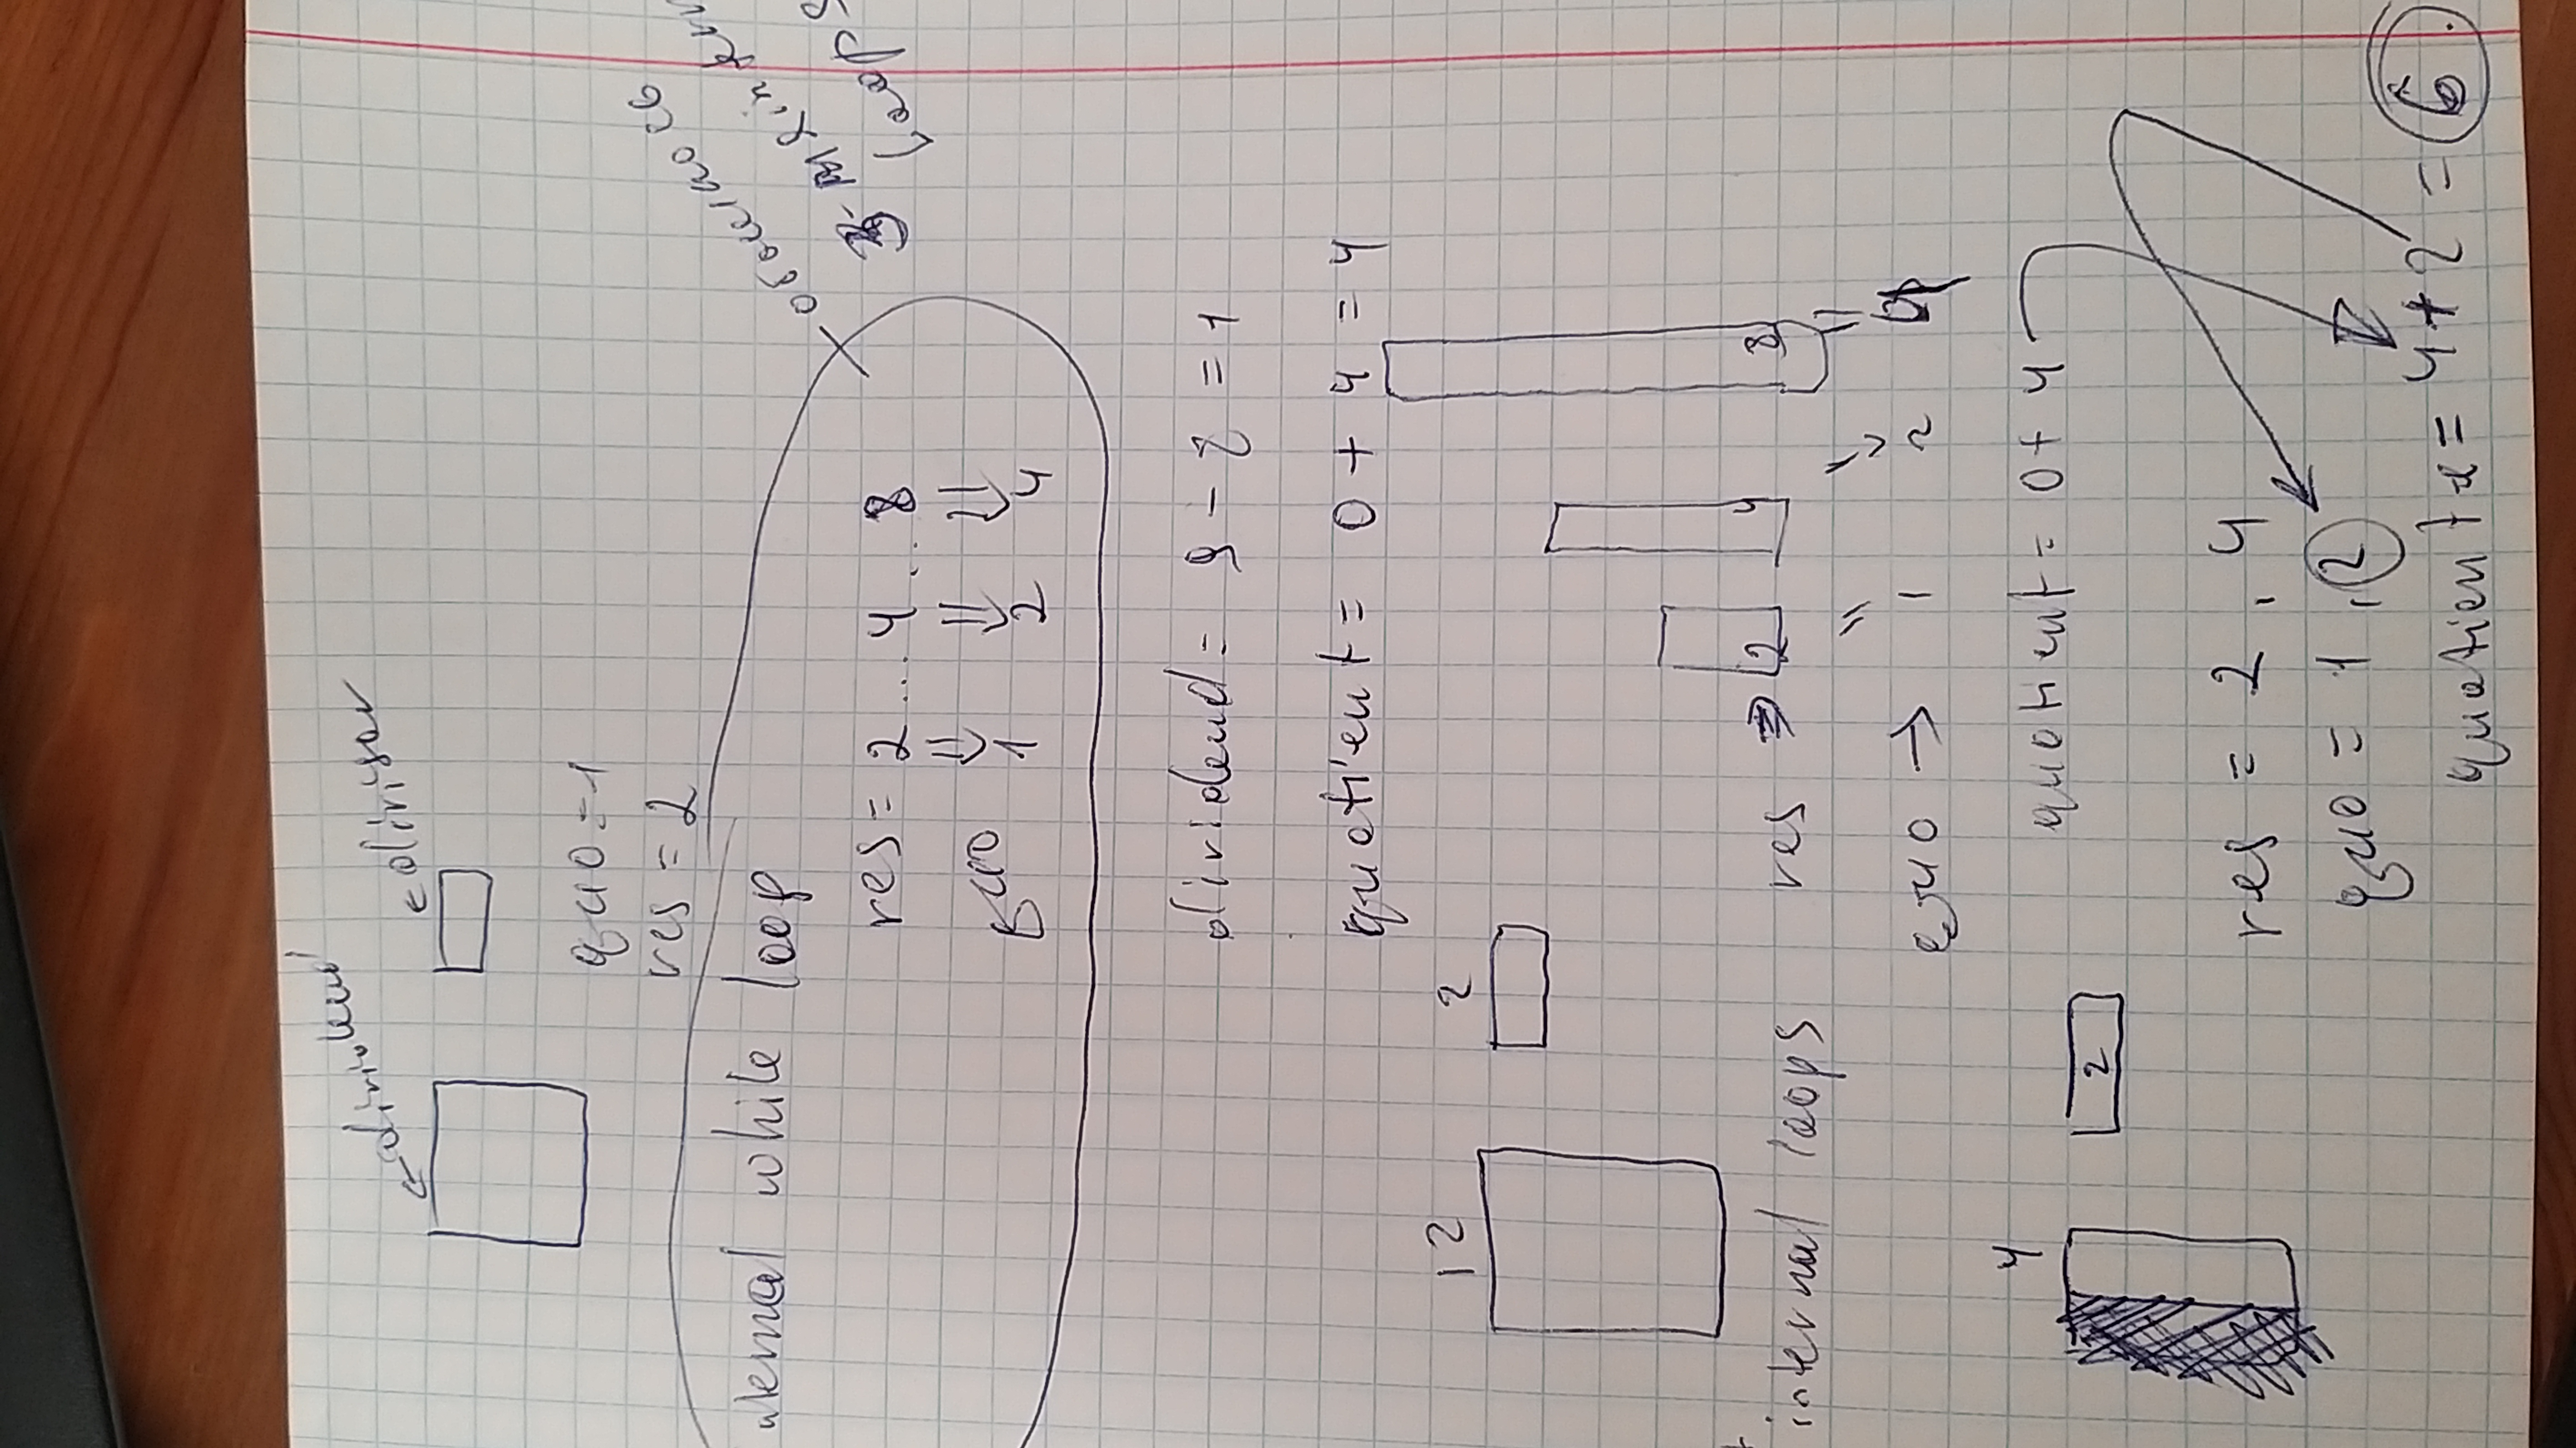 dividend
divisor
quo = 1
res = 2
internal while loop
res = 2 ... 4 .. 8
quo 1 2 4
loops
dividend = 9 - 8 = 1
quotient = 0 + 4 = 4
12 2
2 4 8
internal loops res
quo → 1 2
4
quotient = 0 + 4
2
res = 2 , 4
quo = 1 , 2
quotient = 4 + 2 = 6 .